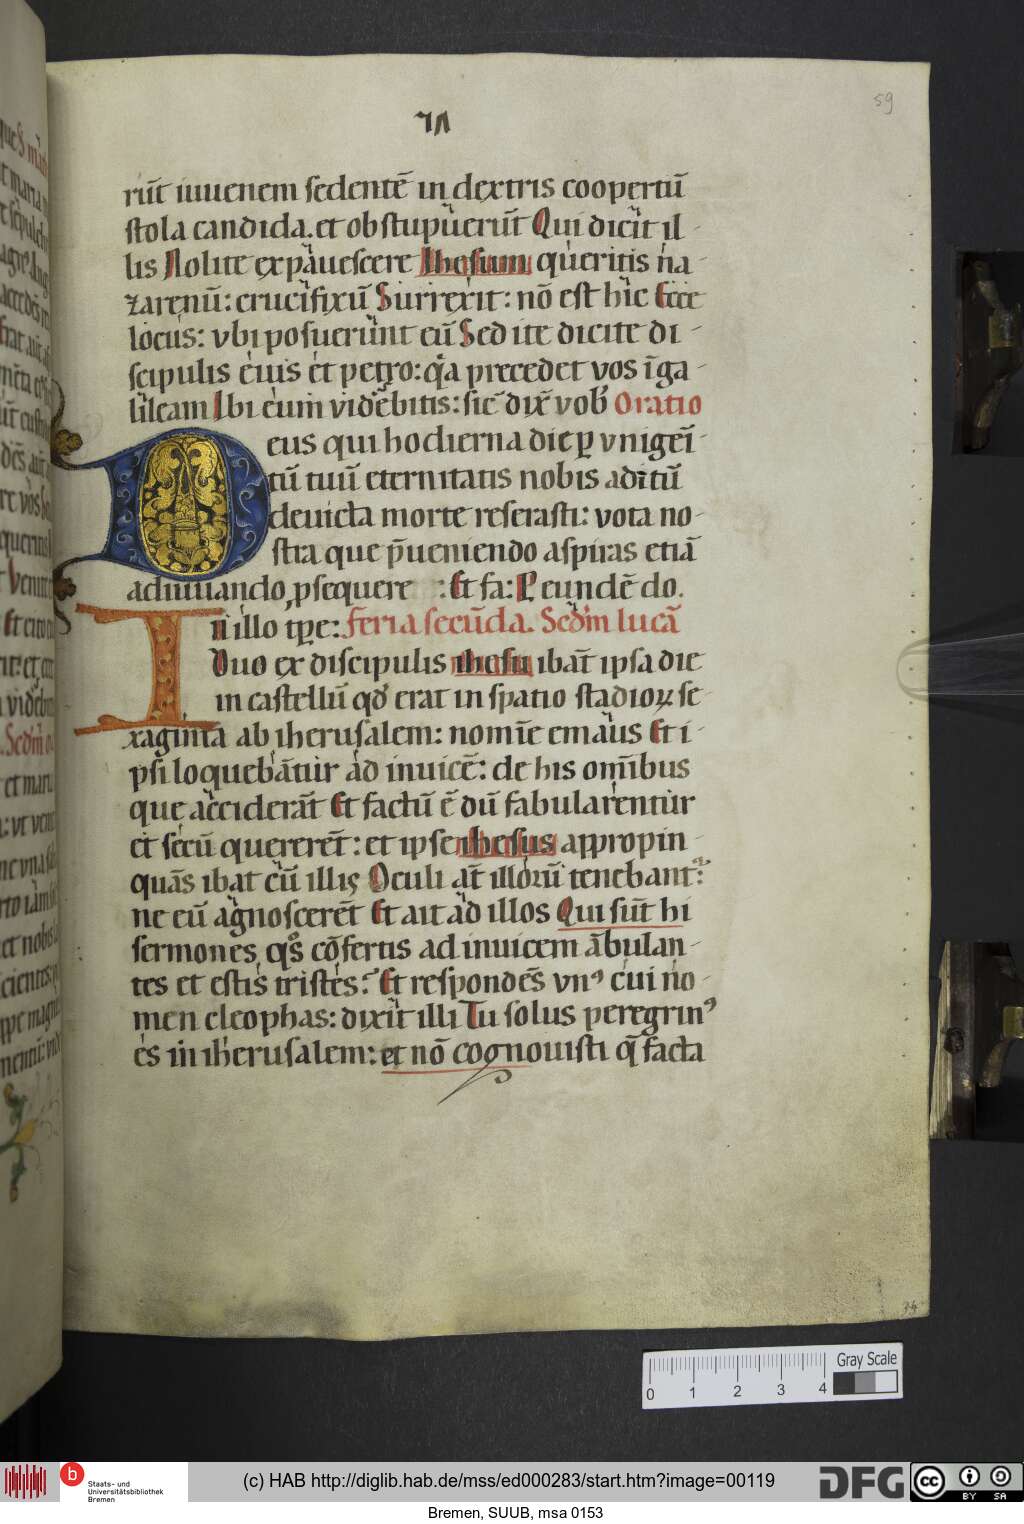 59
rūt iuuenem sedentē in dextris coopertū
stola candida. et obstupuerūt Qui dicit il-
lis Nolite expauescere Ihesum queritis na-
zarenū: crucifixū Surrexit: nō est hic Ecce
locus: vbi posuerunt eū Sed ite dicite di-
scipulis eius et petro: qa precedet vos ī ga-
lileam Ibi eum vidēbitis: sic dix̄ vob Oratio
Deus qui hodierna die ꝑ vnigeī-
tū tuū eternitatis nobis aditū
deuicta morte reserasti: vota no-
stra que p̄ueniendo aspiras etiā
adiuuando ꝓsequere : Et fa: P eundē do.
In illo tꝑe: feria secūda. Scdm lucā
Duo ex discipulis ihesu ibāt ipsa die
in castellū qd erat in spatio stadioꝝ se-
xaginta ab iherusalem: nomīe emaus Et i-
psi loquebātur ad inuicē: de his om̄ibus
que acciderāt Et factū ē dū fabularentur
et secū quererēt: et ipse ihesus appropin-
quās ibat cū illis Oculi at̄ illorū tenebant:
ne eū agnoscerēt Et ait ad illos Qui sūt hi
sermones qs cōfertis ad inuicem ābulan-
tes et estis tristes? Et respondēs vnꝰ cui no-
men cleophas: dixit illi Tu solus peregrinꝰ
es in iherusalem: et nō cognouisti q̄ facta
34
Gray Scale
0 1 2 3 4
b
Staats- und
Universitätsbibliothek
Bremen
(c) HAB http://diglib.hab.de/mss/ed000283/start.htm?image=00119
DFG
cc BY SA
Bremen, SUUB, msa 0153